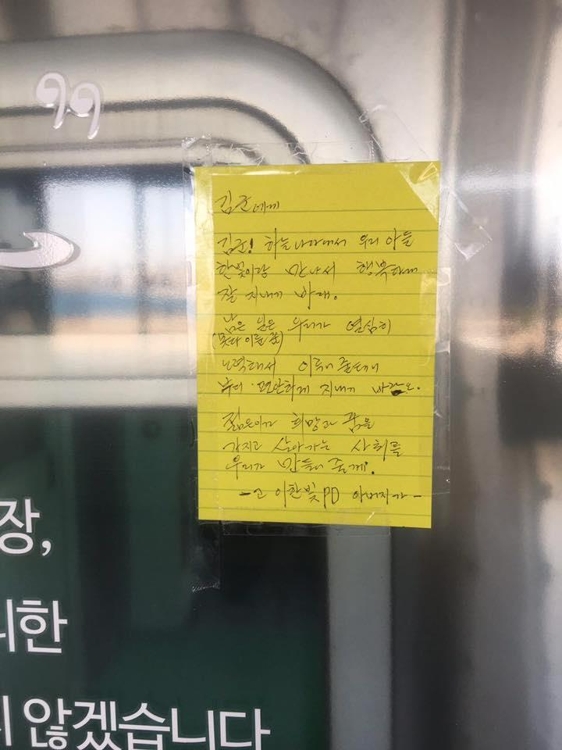 김군에게
김군! 하늘나라에서 우리 아들
한빛이랑 만나서 행복하게
잘 지내기 바래.
남은 일은 우리가 열심히
(못다 이룬 꿈)
노력해서 이루어 줄테니
부디 편안하게 지내기 바라오.
젊은이가 희망과 꿈을
가지고 살아가는 사회를
우리가 만들어 줄게.
- 고 이한빛PD 아버지가 -
장,
한
않겠습니다